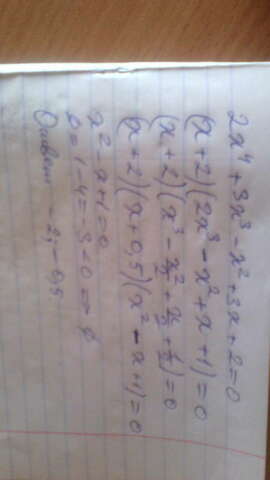 2x⁴ + 3x³ - x² + 3x + 2 = 0
(x + 2)(2x³ - x² + x + 1) = 0
(x + 2)(x³ - x²/2 + x/2 + 1/2) = 0
(x + 2)(x + 0,5)(x² - x + 1) = 0
x² - x + 1 = 0
D = 1 - 4 = - 3 < 0 ⇒ ∅
Ответ: - 2; - 0,5